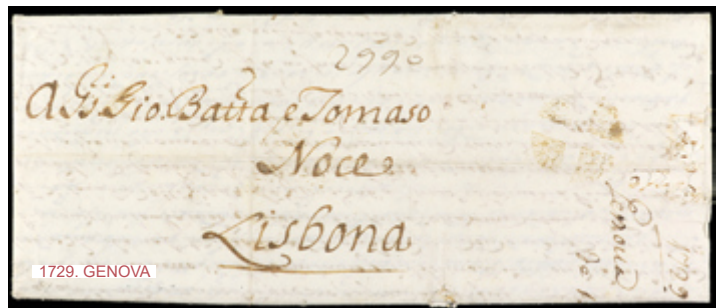 2990
A SS.ri Gio. Batta e Tomaso
Noce
Lisbona
1729. GENOVA
1729
Genova